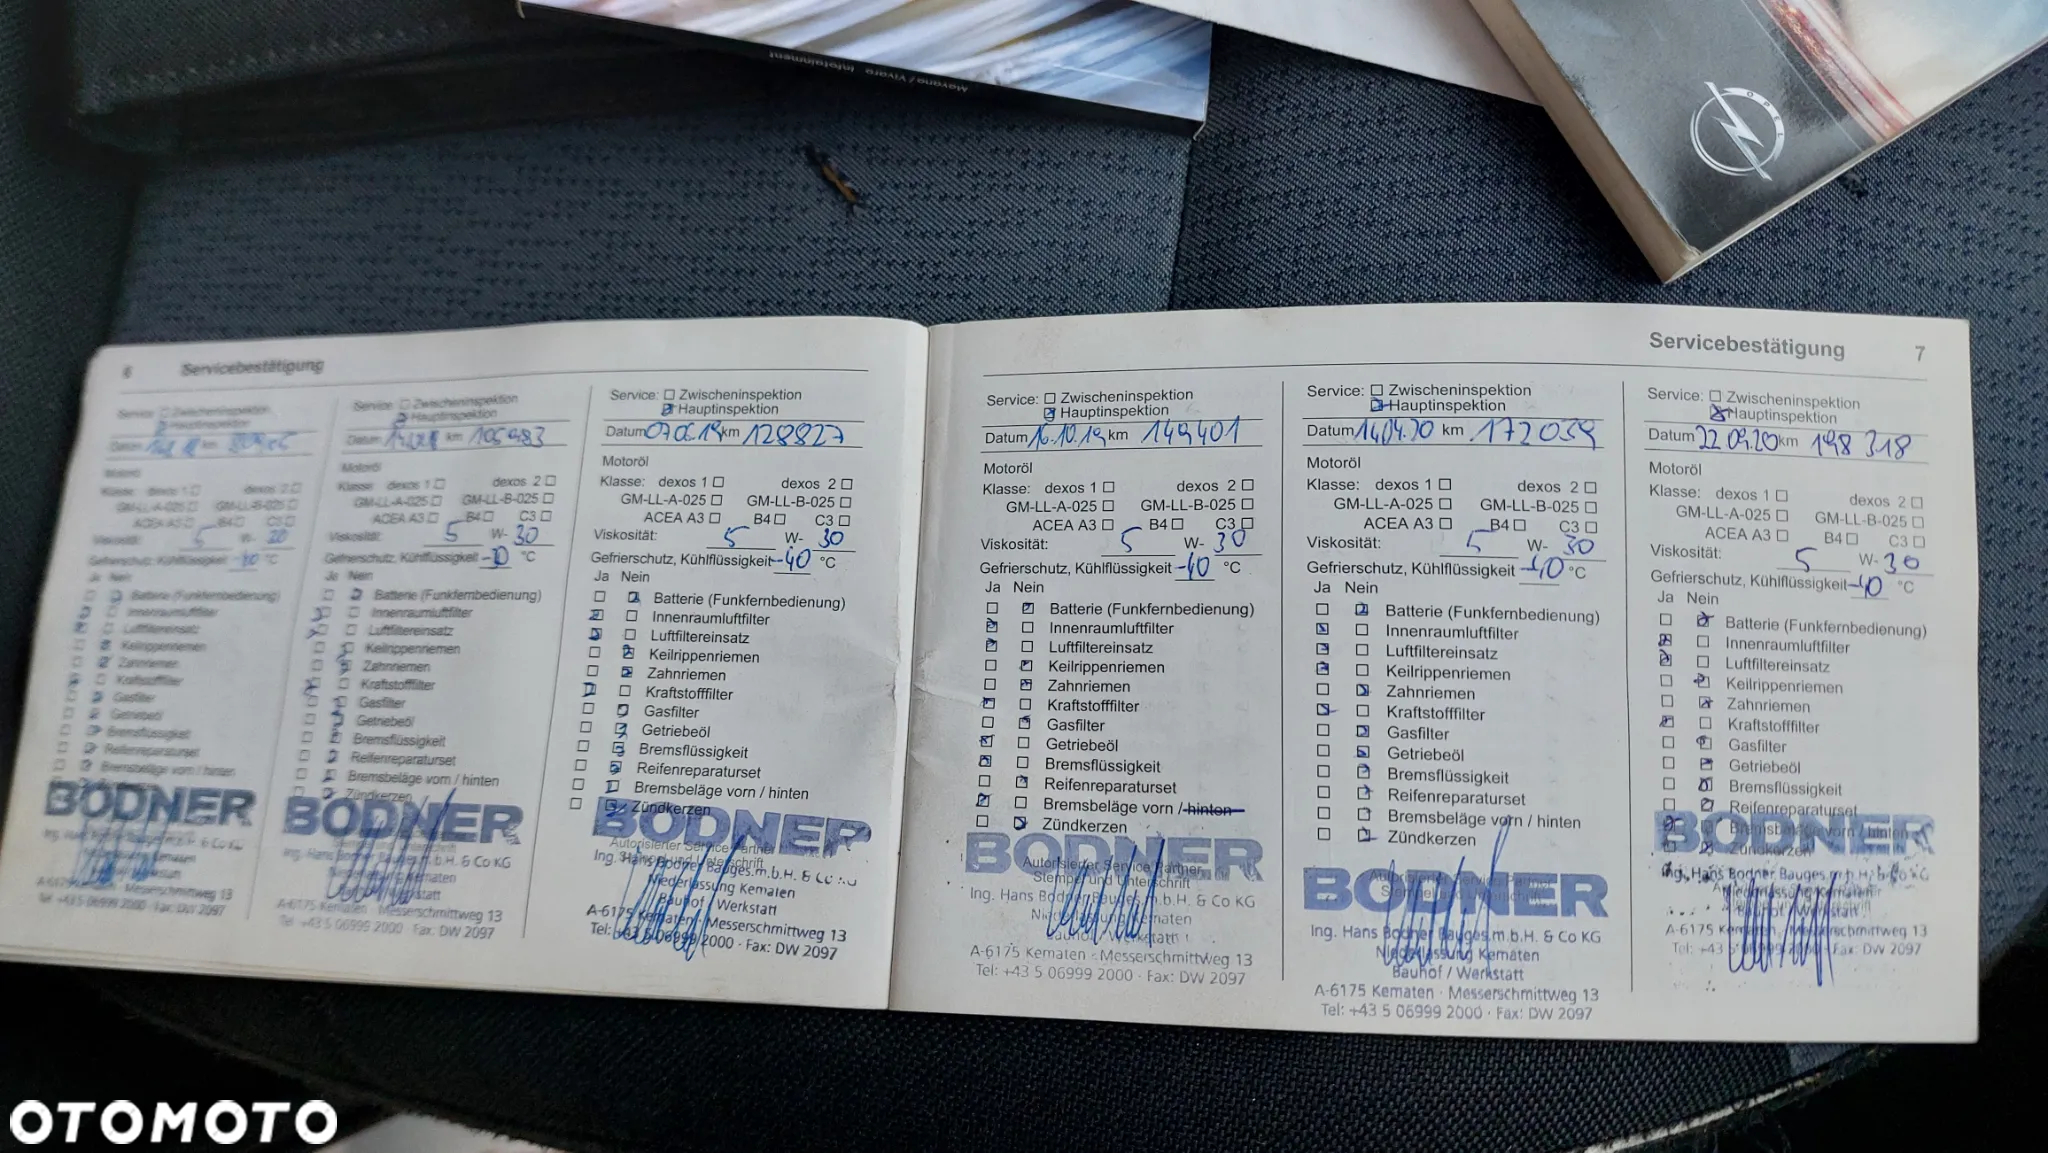 Movano / Vivaro Infotainment
OPEL
6 Servicebestätigung
Service: Zwischeninspektion
Hauptinspektion
Datum km
Motoröl
Klasse: dexos 1 dexos 2
GM-LL-A-025 GM-LL-B-025
ACEA A3 B4 C3
Viskosität: 5 W-
Gefrierschutz, Kühlflüssigkeit °C
Ja Nein
Batterie (Funkfernbedienung)
Innenraumluftfilter
Luftfiltereinsatz
Keilrippenriemen
Zahnriemen
Kraftstofffilter
Gasfilter
Getriebeöl
Bremsflüssigkeit
Reifenreparaturset
Bremsbeläge vorn / hinten
BODNER
Messerschmittweg 13
Tel: +43 5 06999 2000 · Fax: DW 2097
Service: Zwischeninspektion
Hauptinspektion
Datum km 105983
Motoröl
Klasse: dexos 1 dexos 2
GM-LL-A-025 GM-LL-B-025
ACEA A3 B4 C3
Viskosität: 5 W- 30
Gefrierschutz, Kühlflüssigkeit °C
Ja Nein
Batterie (Funkfernbedienung)
Innenraumluftfilter
Luftfiltereinsatz
Keilrippenriemen
Zahnriemen
Kraftstofffilter
Gasfilter
Getriebeöl
Bremsflüssigkeit
Reifenreparaturset
Bremsbeläge vorn / hinten
Zündkerzen
BODNER
Ing. Hans Bodner Bauges.m.b.H. & Co KG
A-6175 Kematen · Messerschmittweg 13
Tel: +43 5 06999 2000 · Fax: DW 2097
Service: Zwischeninspektion
Hauptinspektion
Datum km 128827
Motoröl
Klasse: dexos 1 dexos 2
GM-LL-A-025 GM-LL-B-025
ACEA A3 B4 C3
Viskosität: 5 W- 30
Gefrierschutz, Kühlflüssigkeit -40 °C
Ja Nein
Batterie (Funkfernbedienung)
Innenraumluftfilter
Luftfiltereinsatz
Keilrippenriemen
Zahnriemen
Kraftstofffilter
Gasfilter
Getriebeöl
Bremsflüssigkeit
Reifenreparaturset
Bremsbeläge vorn / hinten
Zündkerzen
BODNER
Autorisierter Service Partner
Stempel und Unterschrift
Ing. Hans Bodner Bauges.m.b.H. & Co KG
Niederlassung Kematen
Bauhof / Werkstatt
A-6175 Kematen · Messerschmittweg 13
Tel: +43 5 06999 2000 · Fax: DW 2097
Servicebestätigung 7
Service: Zwischeninspektion
Hauptinspektion
Datum 16.10.19 km 149401
Motoröl
Klasse: dexos 1 dexos 2
GM-LL-A-025 GM-LL-B-025
ACEA A3 B4 C3
Viskosität: 5 W- 30
Gefrierschutz, Kühlflüssigkeit -40 °C
Ja Nein
Batterie (Funkfernbedienung)
Innenraumluftfilter
Luftfiltereinsatz
Keilrippenriemen
Zahnriemen
Kraftstofffilter
Gasfilter
Getriebeöl
Bremsflüssigkeit
Reifenreparaturset
Bremsbeläge vorn / hinten
Zündkerzen
BODNER
Autorisierter Service Partner
Stempel und Unterschrift
Ing. Hans Bodner Bauges.m.b.H. & Co KG
Niederlassung Kematen
Bauhof / Werkstatt
A-6175 Kematen · Messerschmittweg 13
Tel: +43 5 06999 2000 · Fax: DW 2097
Service: Zwischeninspektion
Hauptinspektion
Datum 14.04.20 km 172059
Motoröl
Klasse: dexos 1 dexos 2
GM-LL-A-025 GM-LL-B-025
ACEA A3 B4 C3
Viskosität: 5 W- 30
Gefrierschutz, Kühlflüssigkeit -40 °C
Ja Nein
Batterie (Funkfernbedienung)
Innenraumluftfilter
Luftfiltereinsatz
Keilrippenriemen
Zahnriemen
Kraftstofffilter
Gasfilter
Getriebeöl
Bremsflüssigkeit
Reifenreparaturset
Bremsbeläge vorn / hinten
Zündkerzen
BODNER
Ing. Hans Bodner Bauges.m.b.H. & Co KG
Niederlassung Kematen
Bauhof / Werkstatt
A-6175 Kematen · Messerschmittweg 13
Tel: +43 5 06999 2000 · Fax: DW 2097
Service: Zwischeninspektion
Hauptinspektion
Datum 22.09.20 km 198 318
Motoröl
Klasse: dexos 1 dexos 2
GM-LL-A-025 GM-LL-B-025
ACEA A3 B4 C3
Viskosität: 5 W- 30
Gefrierschutz, Kühlflüssigkeit -40 °C
Ja Nein
Batterie (Funkfernbedienung)
Innenraumluftfilter
Luftfiltereinsatz
Keilrippenriemen
Zahnriemen
Kraftstofffilter
Gasfilter
Getriebeöl
Bremsflüssigkeit
Reifenreparaturset
Bremsbeläge vorn / hinten
Zündkerzen
BODNER
Ing. Hans Bodner Bauges.m.b.H. & Co KG
Niederlassung Kematen
Bauhof / Werkstatt
A-6175 Kematen, Messerschmittweg 13
Tel: +43 5 06999 2000 · Fax: DW 2097
OTOMOTO